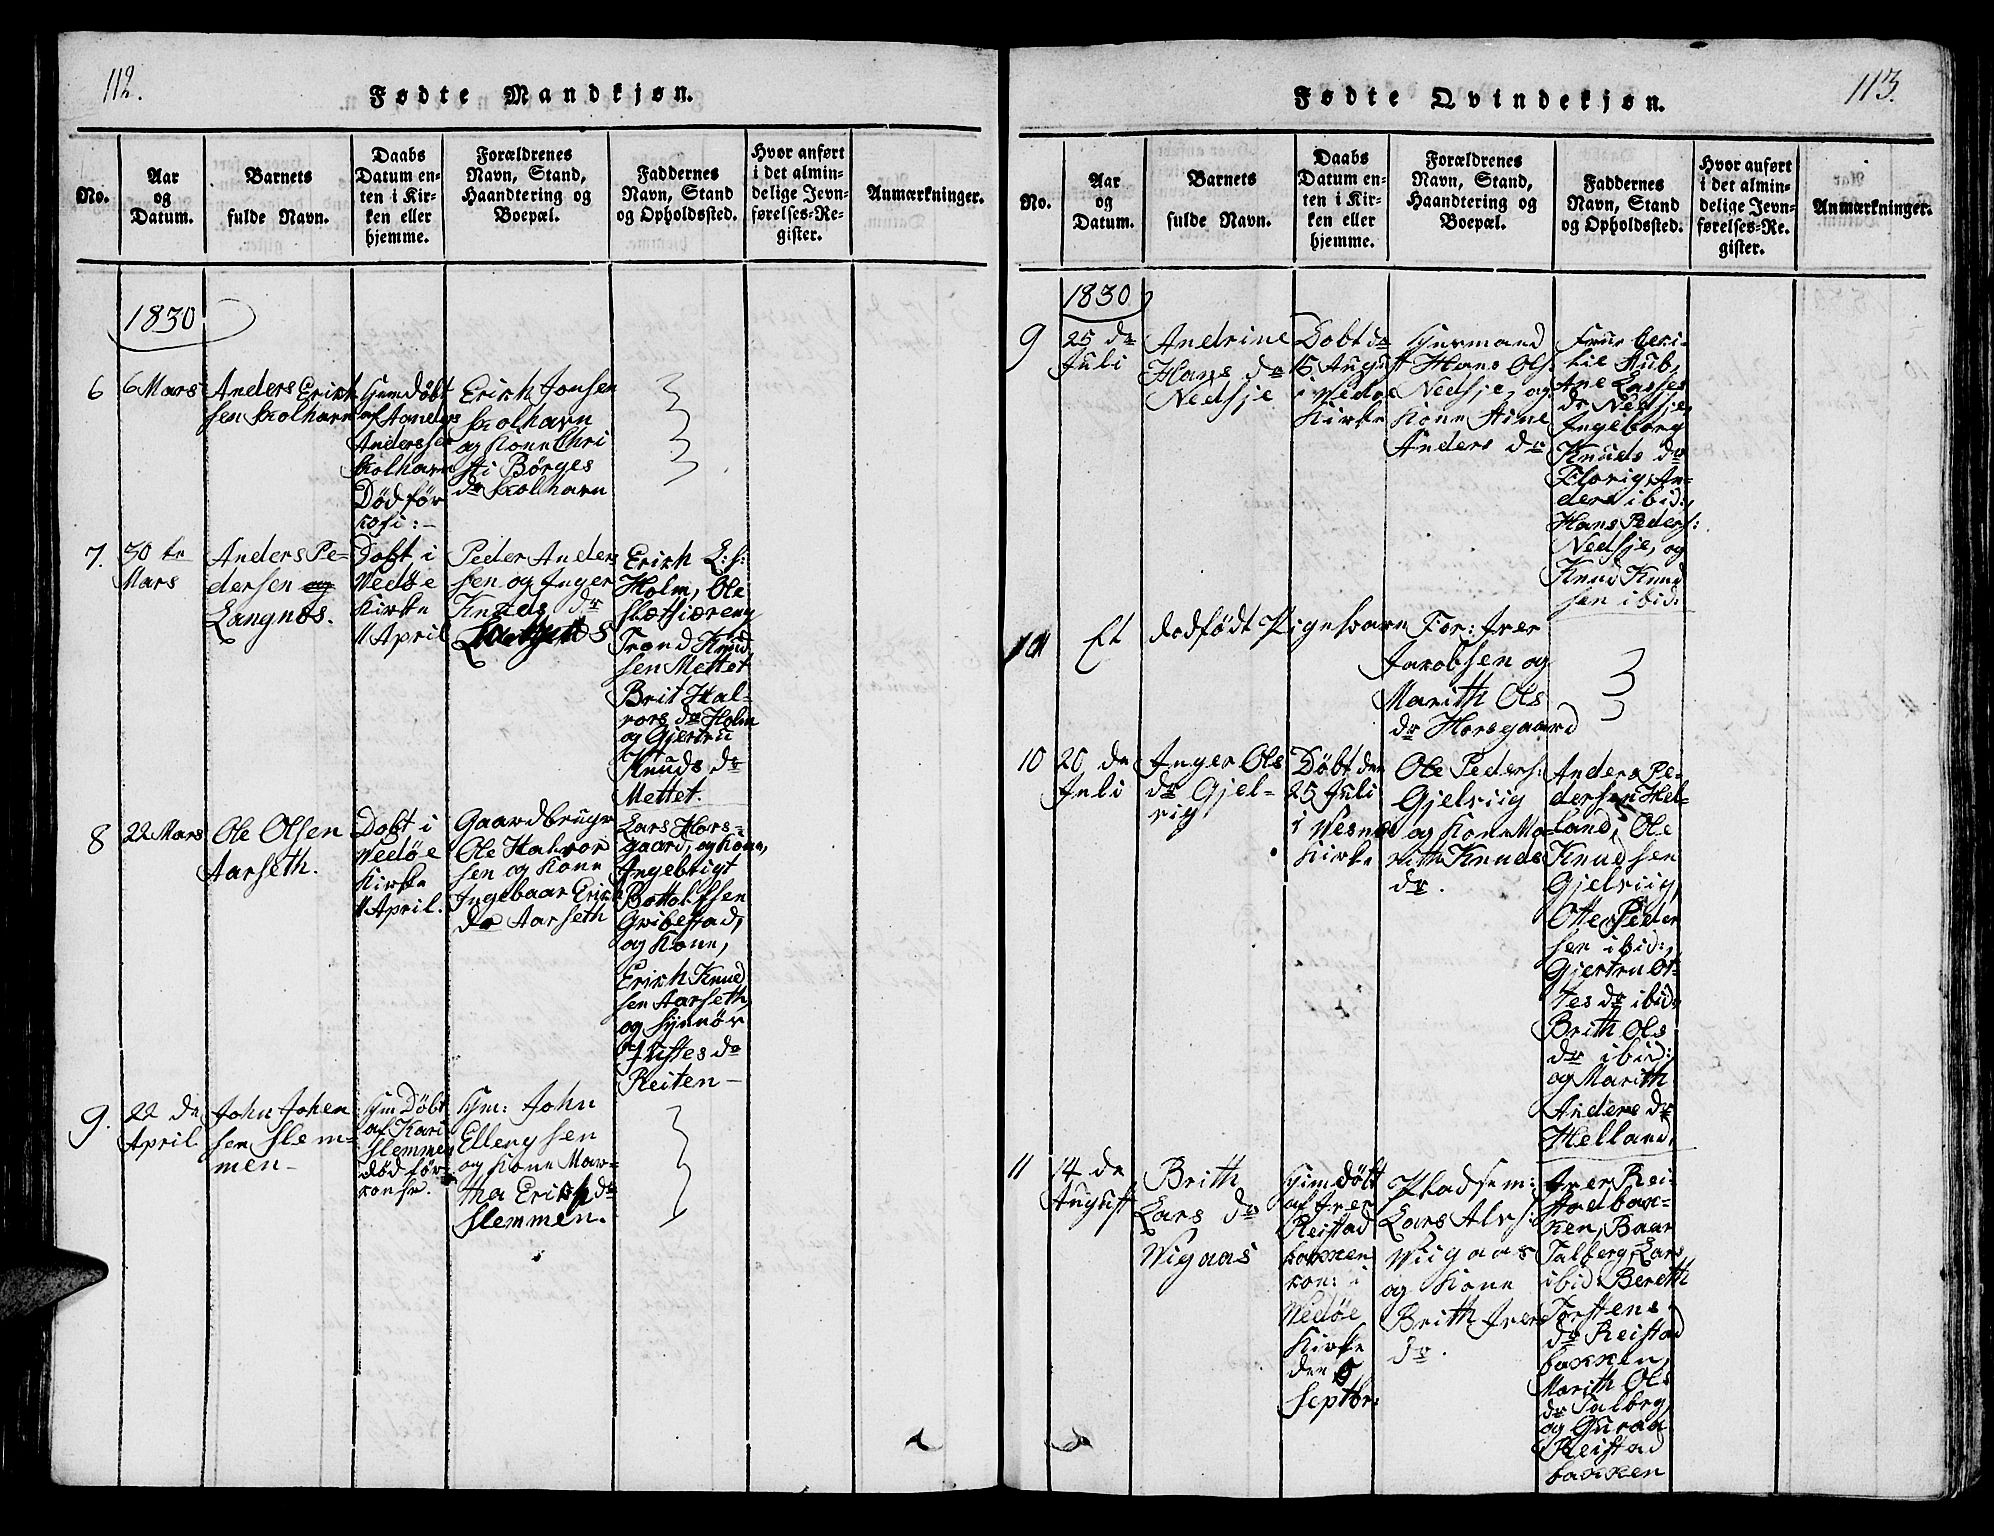 112.
Fødte Mandkjøn.
No.
Aar
og
Datum.
Barnets
fulde Navn.
Daabs
Datum en-
ten i Kir-
ken eller
hjemme.
Forældrenes
Navn, Stand,
Haandtering og
Boepæl.
Faddernes
Navn, Stand
og Opholdssted.
Hvor anført
i det almin-
delige Jevn-
førelses-Re-
gister.
Anmærkninger.
1830
6
6 Mars
Anders Erich
sen Kolhavn
Hjemdøbt
af Anders
Anderssen
Kolhavn
Død før
Erich Jonsen
Kolhavn
og Kone Chri
sti Børges
dr Kolhavn
7.
30 te
Mars
Anders Pe-
dersen og
Langnæs.
Døbt i
Vedøe
Kirke
11 April
Peder Anders
sen og Inger
Knuds dr
Erich L: s:
Holm, Ole
Slætkiæreng
Trond Knud
sen Mettet
Brit Hal-
vors dr Holm
og Gjertru
Knuds dr
Mettet.
8
22 Mars
Ole Olsen
Aarseth.
Døbt i
Vedøe
Kirke
11 April.
Gaardbruger
Ole Halvor
sen og Kone
Ingebaar Erich
dr Aarseth
Lars Hors-
gaard, og Kone,
Ingebrigt
Bottolfsen
Gribestad,
og Kone,
Erich Knud
sen Aarseth,
og Synnør
Justes dr
Reiten-
9.
22 de
April
John John
sen Slem-
men-
Hjm Døbt
af Kari
Slemmen
død før
Hjm: John
Ellengsen
og Kone Mar-
tha Erichs dr
Slemmen.
113.
Fødte Qvindekjøn.
No.
Aar
og
Datum.
Barnets
fulde Navn.
Daabs
Datum en-
ten i Kir-
ken eller
hjemme.
Forældrenes
Navn, Stand,
Haandtering og
Boepæl.
Faddernes
Navn, Stand
og Opholdssted.
Hvor anført
i det almin-
delige Jevn-
førelses-Re-
gister.
Anmærkninger.
1830
9
25 de
Juli
Andrine
Hans dr
Nedsje
Døbt d
15 August
i Vedøe
Kirke
Huusmand
Hans Ols:
Nedsje, og
Kone Stine
Anders dr
Frue Ceci-
lie Aub,
Ane Lasses
dr Nedsje,
Ingeborg
Knuds dr
Florig, An-
ders ibid:,
Hans Peders:
Nedsje, og
Knud Knud
sen ibid:
Et
dødfødt Pigebarn
For: Iver
Jacobsen og
Marith Ols
dr Horsgaard
10
20 de
Juli
Inger Ols
dr Gjel-
vig
Døbt den
25 Juli
i Vesnæs
Kirke
Ole Peders:
Gjelviig
og Kone Ma-
rith Knuds
dr.
Anders Pe-
dersen Hel-
land, Ole
Knudsen
Gjelviig,
Otte Peder
sen ibid:,
Gjertru Ot-
tes dr ibid:
Brith Ols
dr ibid:
og Marith
Anders dr
Helland.
11
14 de
August
Brith
Lars dr
Wignæs
Hjemdøbt
af Iver
Reistad
bakken
con: i
Vedøe
Kirke
den 5
Septbr:
Pladsem:
Lars Alvs:
Wiignæs
og Kone
Brith Ivers
dr.
Iver Rei-
stadbak-
ken, Baar
Talberg, Lars
ibid: Bereth
Torstens
dr Reistad
bakken,
Marith Ols
dr Talberg,
og Guraa
Reistad
bakken